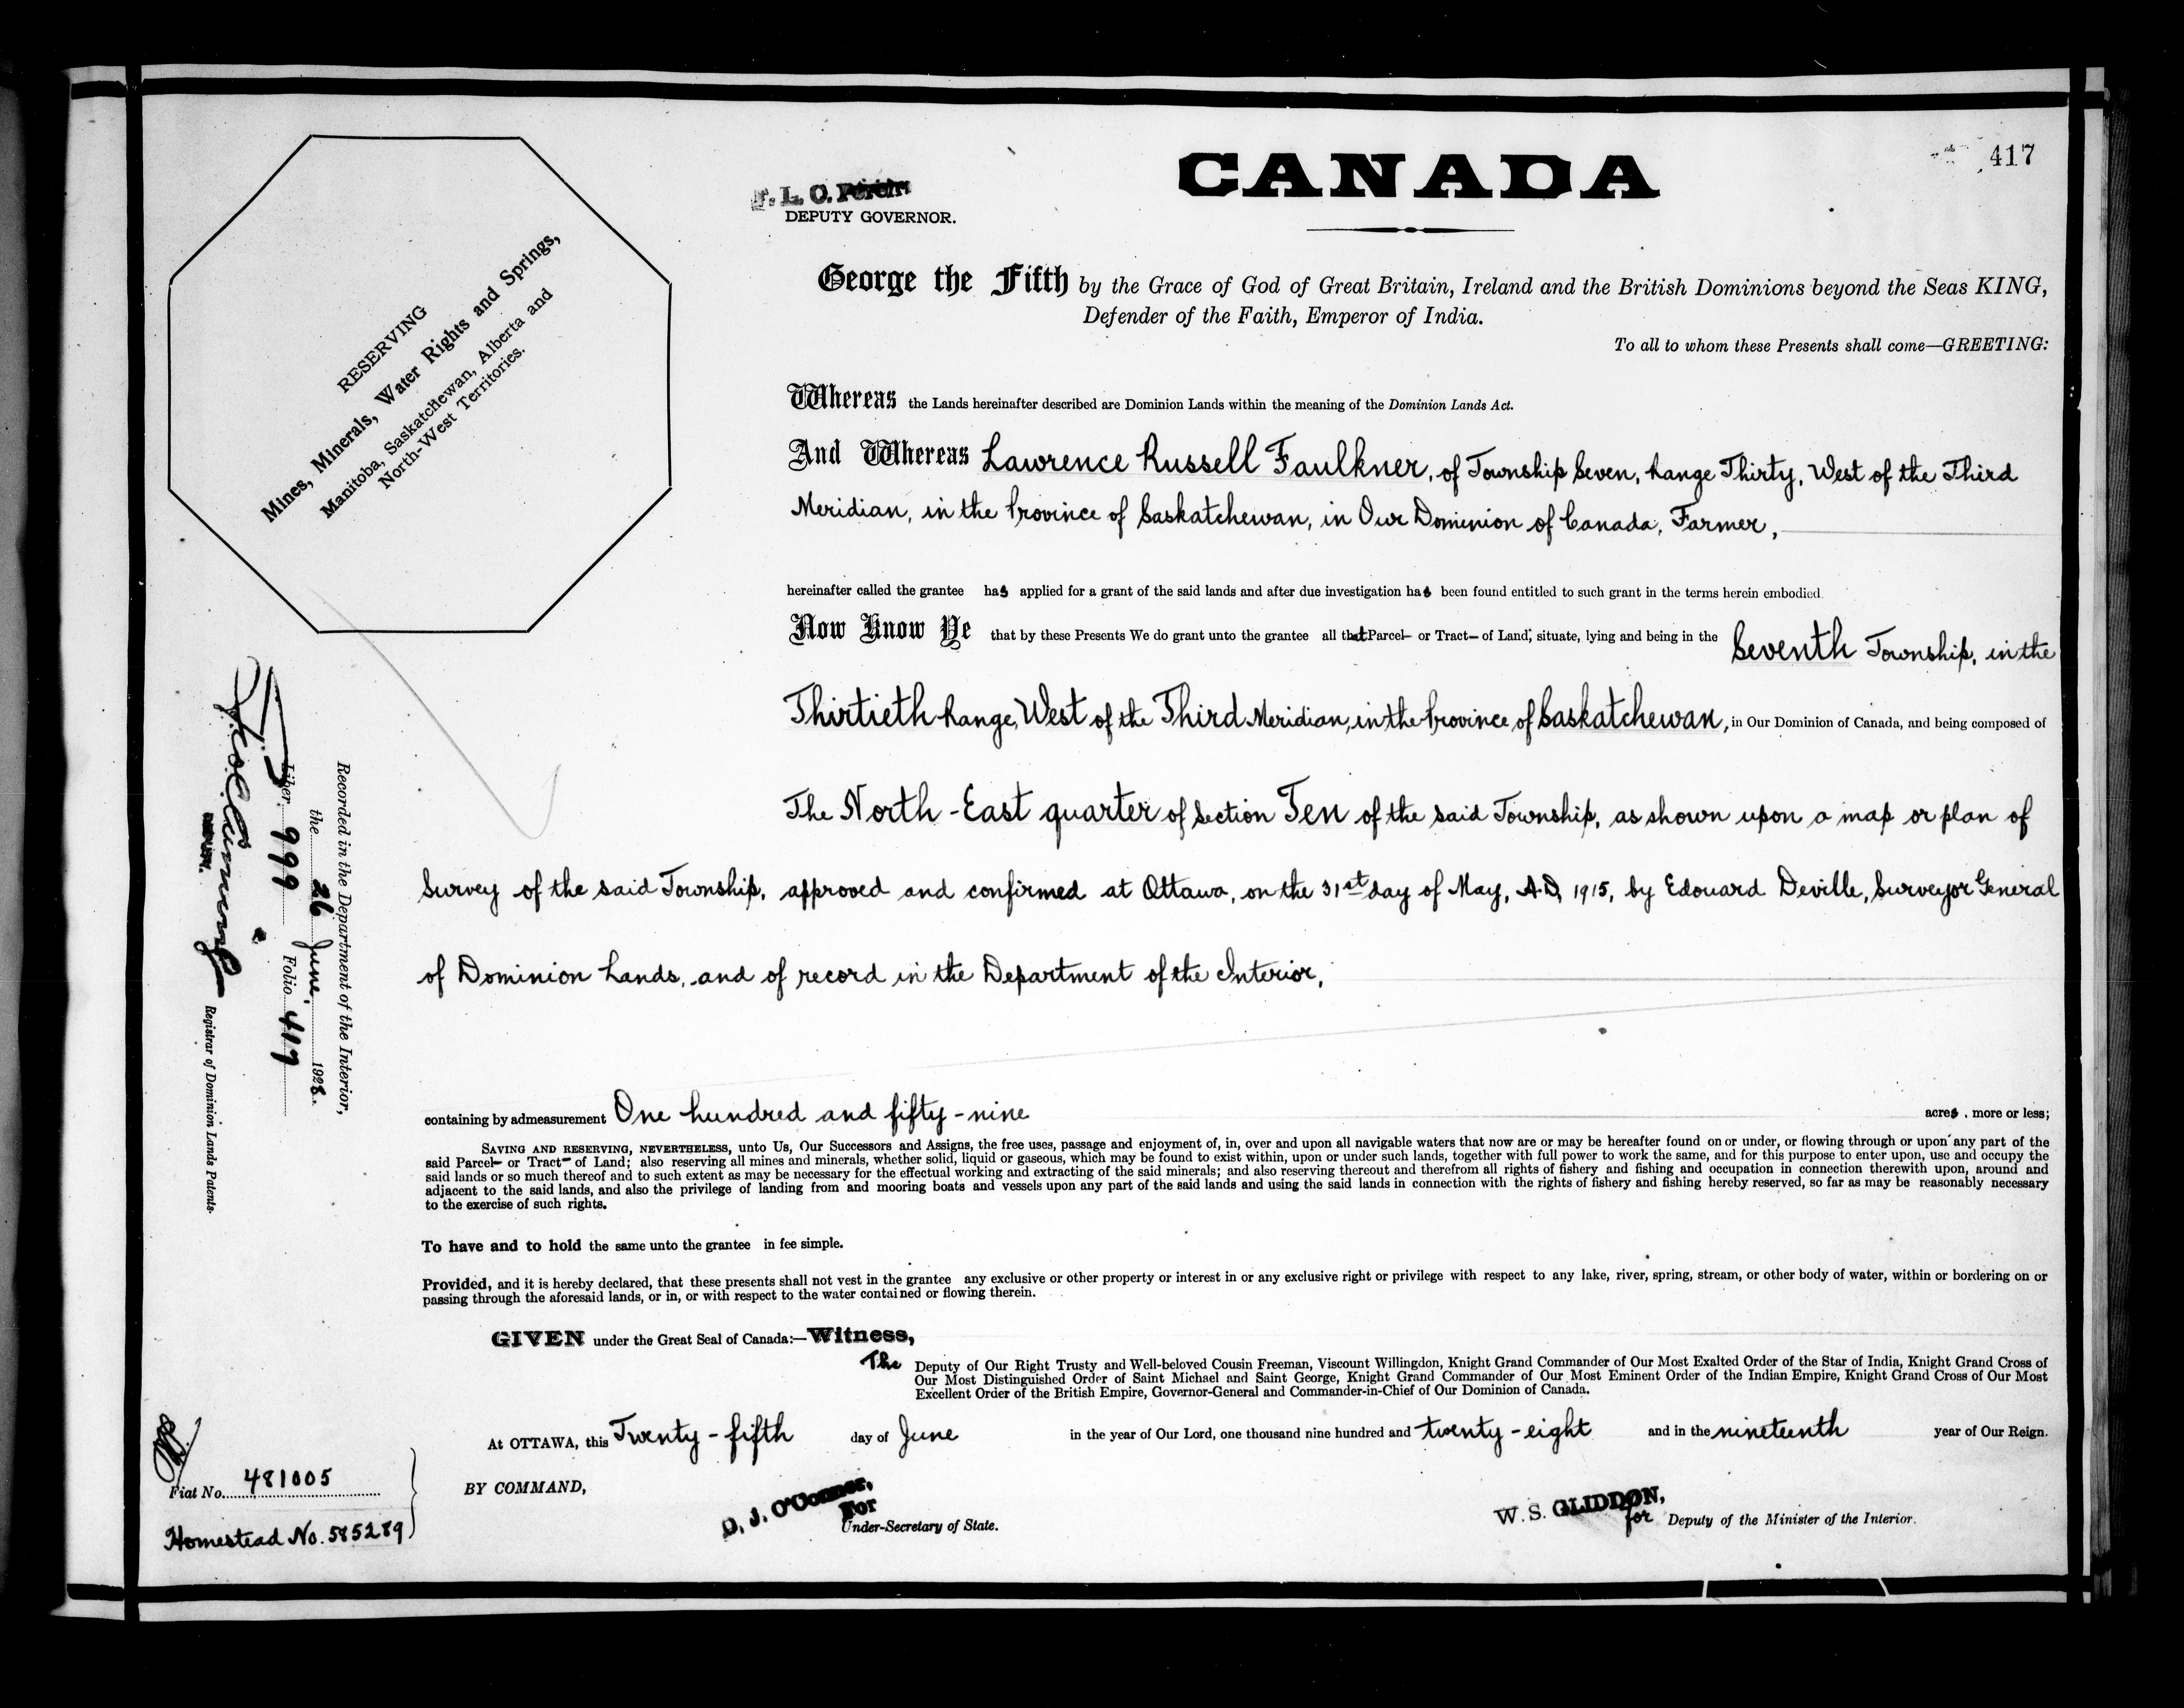 417
CANADA
L. O.
DEPUTY GOVERNOR.
RESERVING
Mines, Minerals, Water Rights and Springs,
Manitoba, Saskatchewan, Alberta and
North-West Territories.
George the Fifth by the Grace of God of Great Britain, Ireland and the British Dominions beyond the Seas KING,
Defender of the Faith, Emperor of India.
To all to whom these Presents shall come—GREETING:
Whereas the Lands hereinafter described are Dominion Lands within the meaning of the Dominion Lands Act.
And Whereas Lawrence Russell Faulkner, of Township Seven, Range Thirty, West of the Third
Meridian, in the Province of Saskatchewan, in Our Dominion of Canada, Farmer,
hereinafter called the grantee has applied for a grant of the said lands and after due investigation has been found entitled to such grant in the terms herein embodied.
Now Know Ye that by these Presents We do grant unto the grantee all that Parcel or Tract of Land, situate, lying and being in the Seventh Township, in the
Thirtieth Range, West of the Third Meridian, in the Province of Saskatchewan, in Our Dominion of Canada, and being composed of
The North-East quarter of Section Ten of the said Township, as shown upon a map or plan of
Survey of the said Township, approved and confirmed at Ottawa, on the 31st day of May, A.D. 1915, by Edouard Deville, Surveyor General
of Dominion Lands, and of record in the Department of the Interior,
containing by admeasurement One hundred and fifty-nine acres, more or less;
SAVING AND RESERVING, NEVERTHELESS, unto Us, Our Successors and Assigns, the free uses, passage and enjoyment of, in, over and upon all navigable waters that now are or may be hereafter found on or under, or flowing through or upon any part of the
said Parcel or Tract of Land; also reserving all mines and minerals, whether solid, liquid or gaseous, which may be found to exist within, upon or under such lands, together with full power to work the same, and for this purpose to enter upon, use and occupy the
said lands or so much thereof and to such extent as may be necessary for the effectual working and extracting of the said minerals; and also reserving thereout and therefrom all rights of fishery and fishing and occupation in connection therewith upon, around and
adjacent to the said lands, and also the privilege of landing from and mooring boats and vessels upon any part of the said lands and using the said lands in connection with the rights of fishery and fishing hereby reserved, so far as may be reasonably necessary
to the exercise of such rights.
To have and to hold the same unto the grantee in fee simple.
Provided, and it is hereby declared, that these presents shall not vest in the grantee any exclusive or other property or interest in or any exclusive right or privilege with respect to any lake, river, spring, stream, or other body of water, within or bordering on or
passing through the aforesaid lands, or in, or with respect to the water contained or flowing therein.
GIVEN under the Great Seal of Canada:—Witness,
The Deputy of Our Right Trusty and Well-beloved Cousin Freeman, Viscount Willingdon, Knight Grand Commander of Our Most Exalted Order of the Star of India, Knight Grand Cross of
Our Most Distinguished Order of Saint Michael and Saint George, Knight Grand Commander of Our Most Eminent Order of the Indian Empire, Knight Grand Cross of Our Most
Excellent Order of the British Empire, Governor-General and Commander-in-Chief of Our Dominion of Canada.
At OTTAWA, this Twenty-fifth day of June in the year of Our Lord, one thousand nine hundred and twenty-eight and in the nineteenth year of Our Reign.
BY COMMAND,
D. J. O'Connor,
For
Under-Secretary of State.
W. S. GLIDDON,
for Deputy of the Minister of the Interior.
Recorded in the Department of the Interior,
the 26 June, 1928.
Liber 999 Folio 417
DEPUTY.
Registrar of Dominion Lands Patents.
Fiat No. 481005
Homestead No. 585289